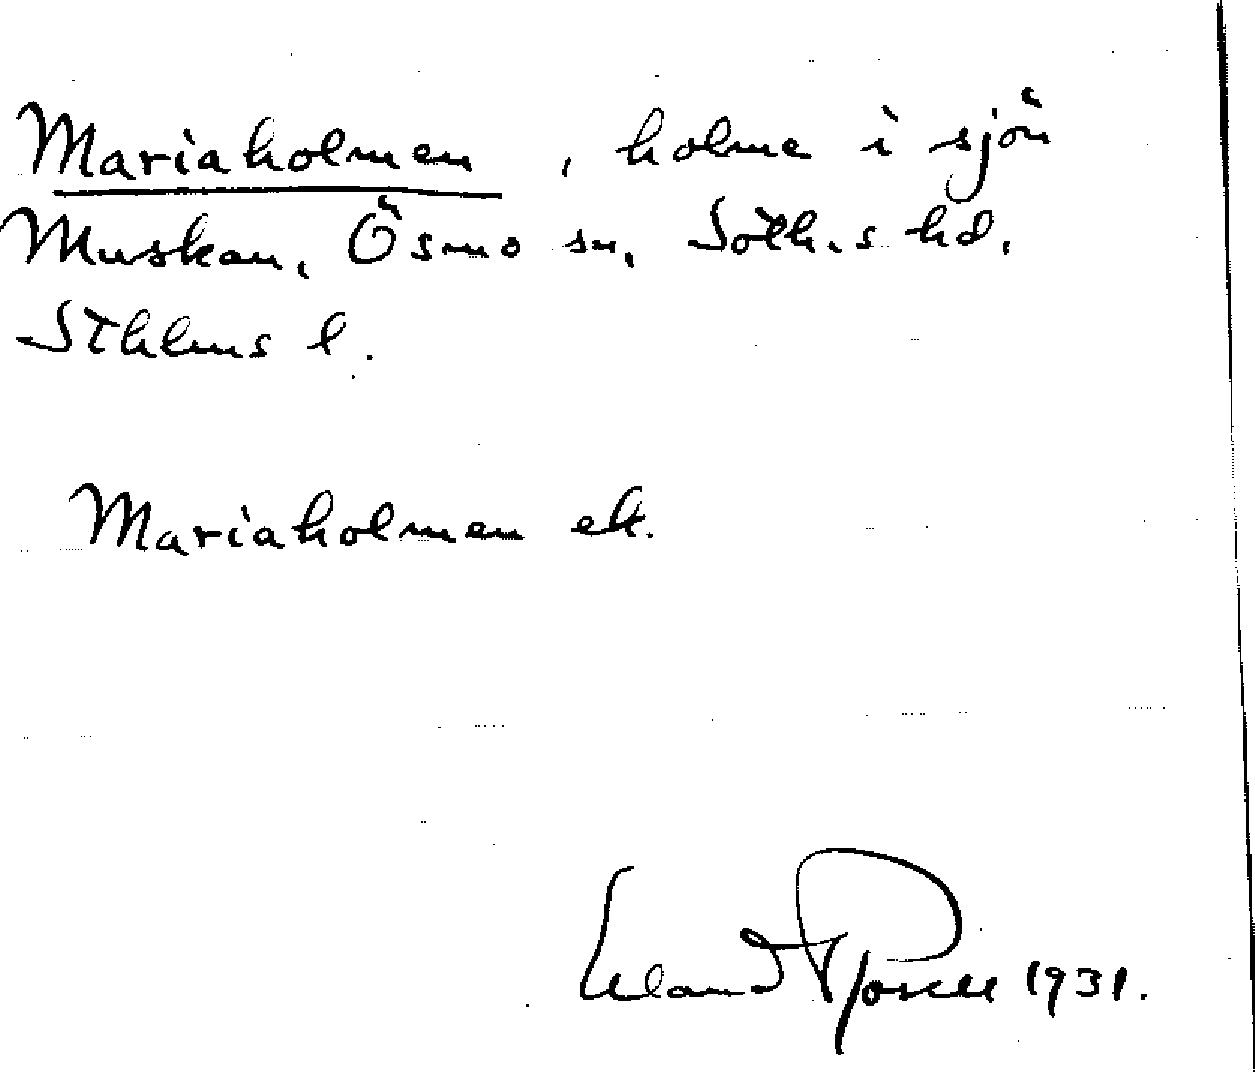 Mariaholmen, holme i sjön
Muskan, Ösmo sn, Soth.s hd.
Sthlms l.
Mariaholmen ek.
Erland Rosell 1931.